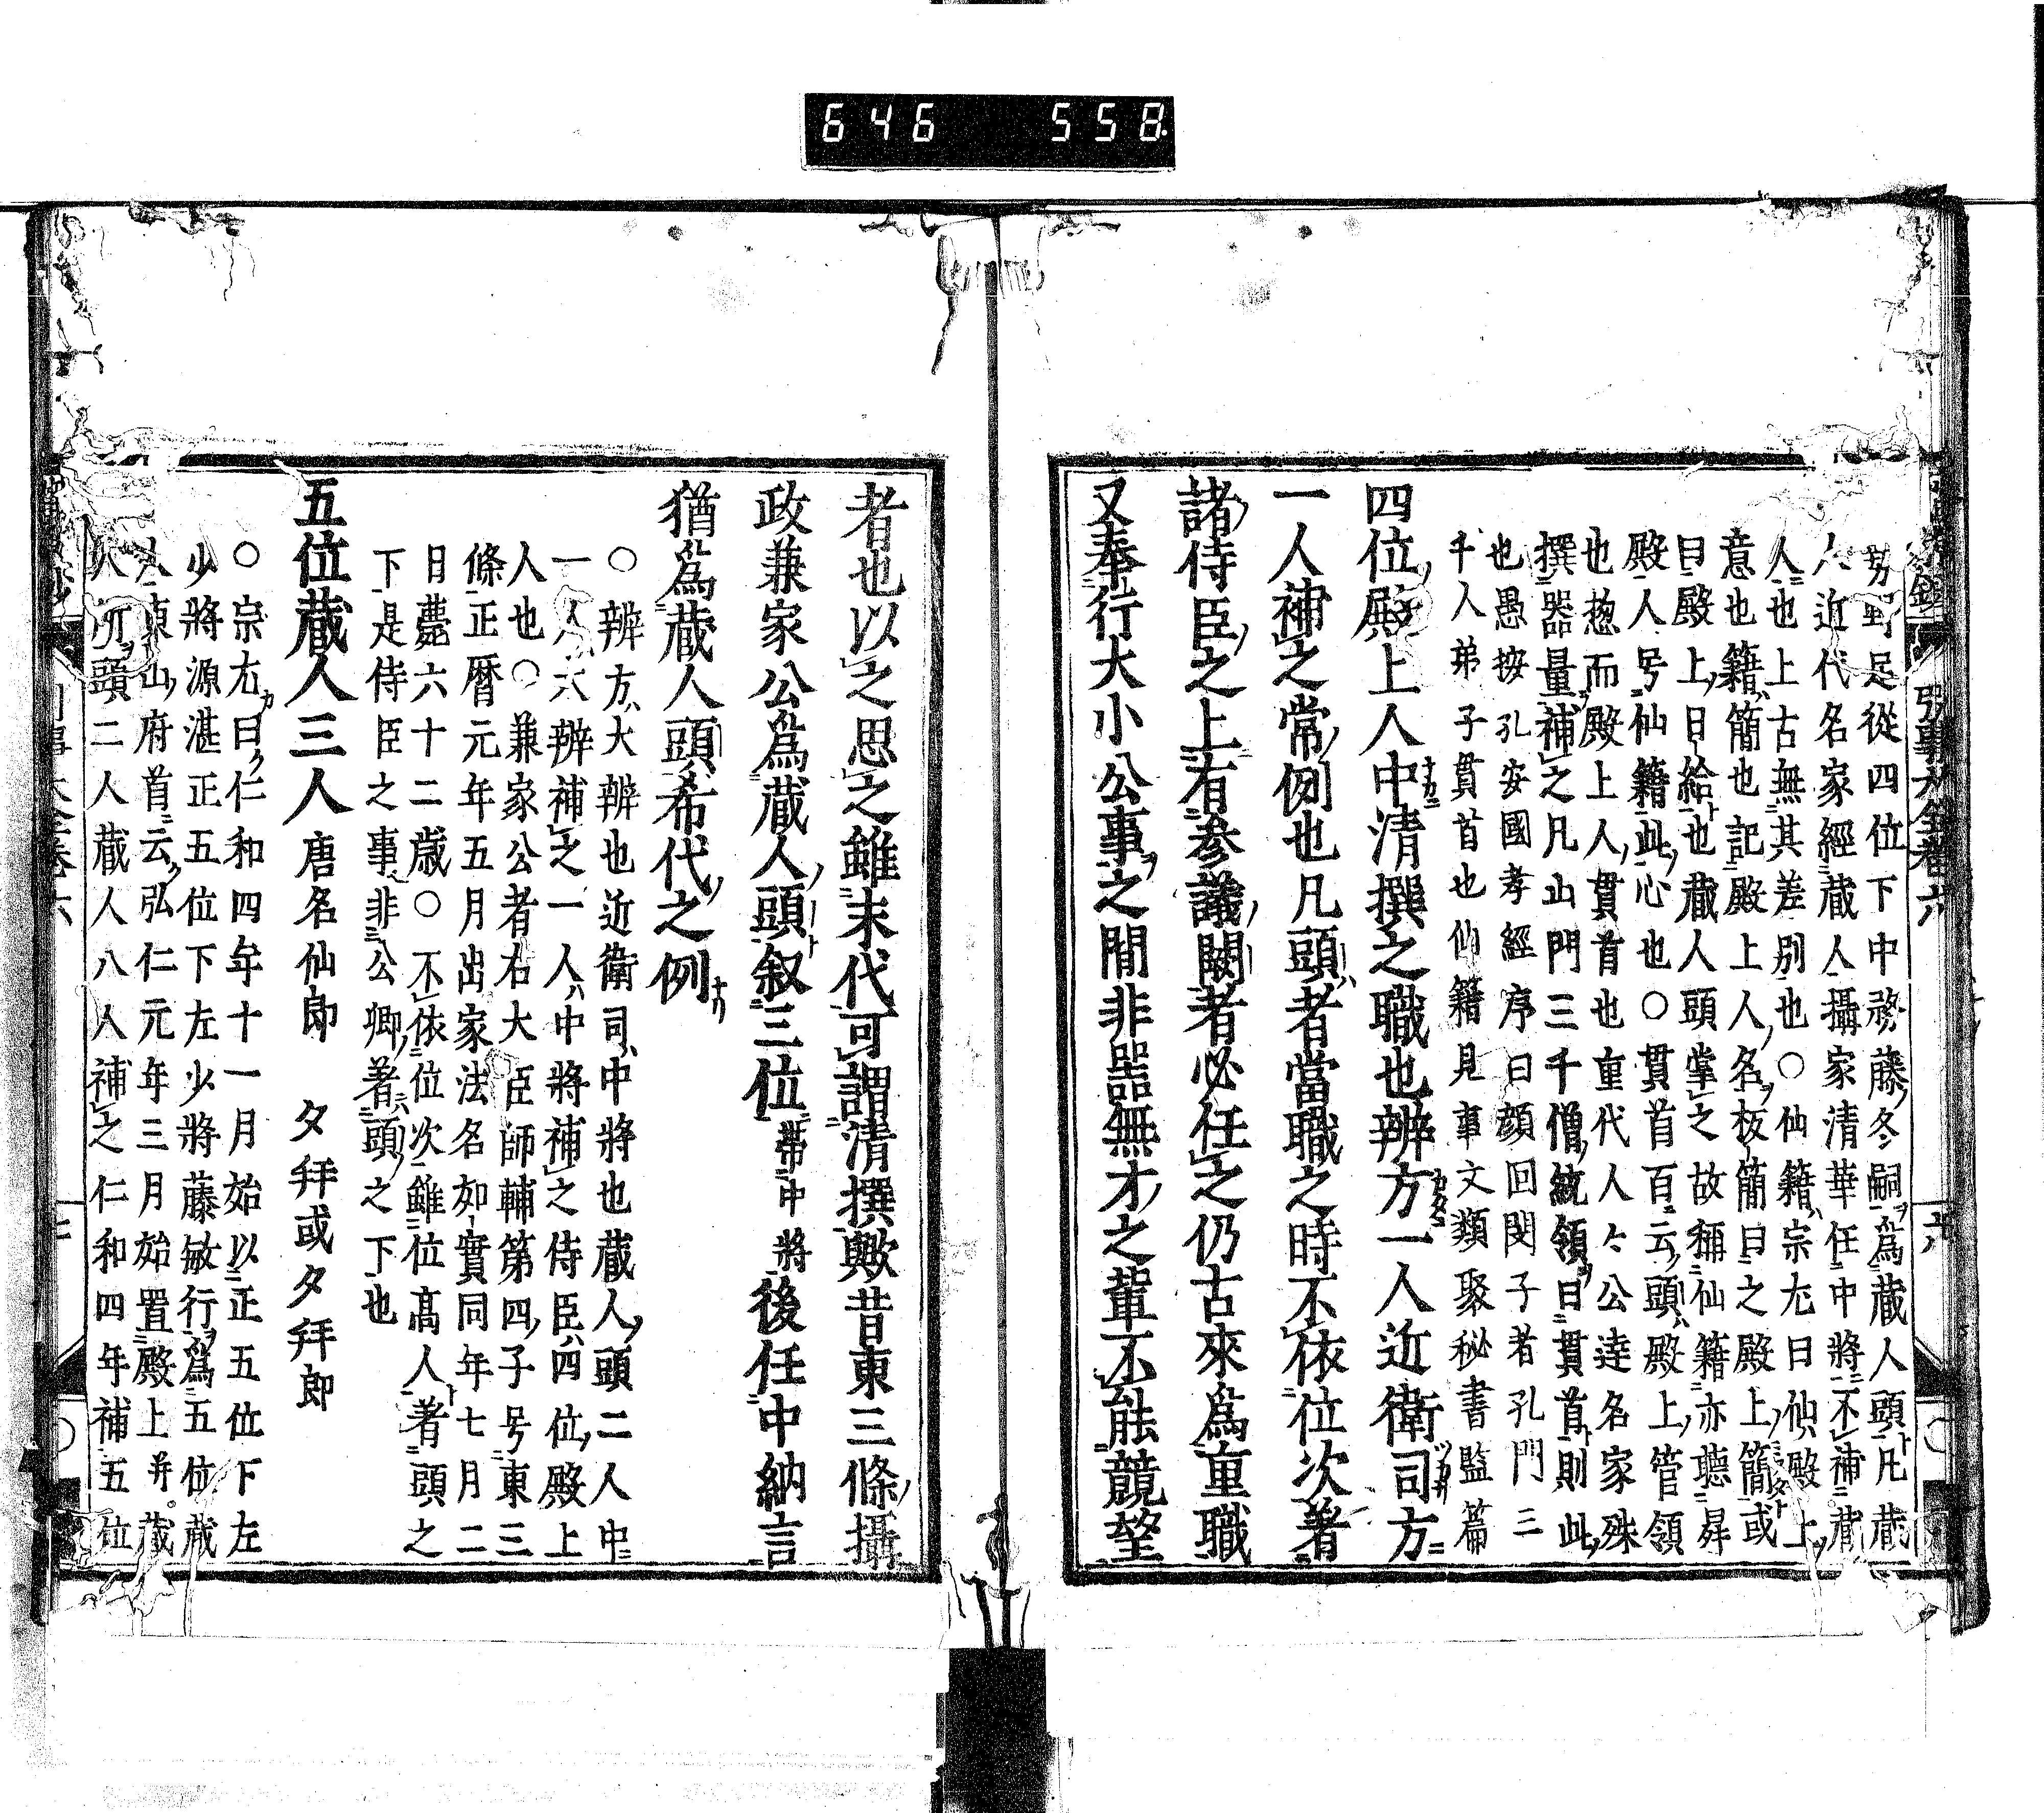 646 558
野足從四位下中務藤冬嗣為蔵人頭凡蔵
人近代名家經蔵人攝家清華任中將不補蔵
人也上古無其差別也○仙籍宗尤曰仙殿上
意也籍簡也記殿上人名板簡曰之殿上簡或
曰殿上日給也蔵人頭掌之故稱仙籍亦聽昇
殿人号仙籍此心也○貫首百云頭殿上管領
也惣而殿上人貫首也重代人々公達名家殊
撰器量補之凡山門三千僧統領曰貫首則此
也愚按孔安國孝經序曰顔回閔子者孔門三
千人弟子貫首也仙籍見事文類聚秘書監篇
四位殿上人中ナカニ清撰之職也辨方カタニ一人近衛司ツカサ方ニ
一人補之常例也凡頭者當職之時不依位次著
諸侍臣之上有参議闕者必任之仍古來為重職
又奉行大小公事之間非器無才之輩不能競望
者也以之思之雖末代可謂清撰歟昔東三條攝
政兼家公為蔵人頭叙三位帯中將後任中納言
猶為蔵人頭希代之例ナリ
○辨方大辨也近衛司中將也蔵人頭二人中
一人大辨補之一人中將補之侍臣四位殿上
人也○兼家公者右大臣師輔第四子号東三
條正暦元年五月出家法名如實同年七月二
日薨六十二歳○不依位次雖位高人著頭之
下是侍臣之事非公卿著頭之下也
五位蔵人三人唐名仙郎 夕拜或夕拜郎
○宗尤曰仁和四年十一月始以正五位下左
少將源湛正五位下左少將藤敏行為五位蔵
人東山府首云弘仁元年三月始置殿上并蔵
人所頭二人蔵人八人補之仁和四年補五位